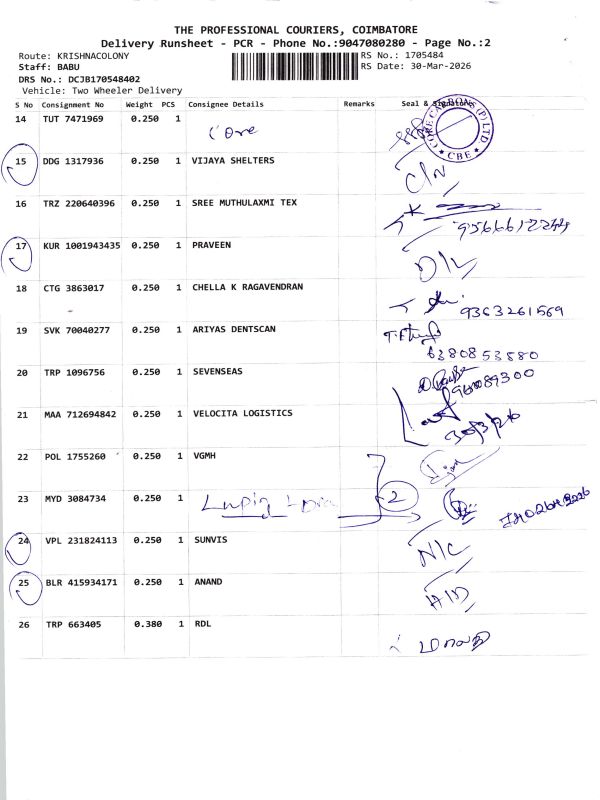 THE PROFESSIONAL COURIERS, COIMBATORE
Delivery Runsheet - PCR - Phone No.:9047080280 - Page No.:2
Route: KRISHNACOLONY
RS No.: 1705484
Staff: BABU
RS Date: 30-Mar-2026
DRS No.: DCJB170548402
Vehicle: Two Wheeler Delivery
S No Consignment No Weight PCS Consignee Details Remarks Seal & Signature
14 TUT 7471969 0.250 1 Core
CORE CARBONS (P) LTD
* CBE *
15 DDG 1317936 0.250 1 VIJAYA SHELTERS
C/N
16 TRZ 220640396 0.250 1 SREE MUTHULAXMI TEX
17 KUR 1001943435 0.250 1 PRAVEEN
D/L
18 CTG 3863017 0.250 1 CHELLA K RAGAVENDRAN
9363261569
19 SVK 70040277 0.250 1 ARIYAS DENTSCAN
6380853880
20 TRP 1096756 0.250 1 SEVENSEAS
21 MAA 712694842 0.250 1 VELOCITA LOGISTICS
30/3/26
22 POL 1755260 0.250 1 VGMH
23 MYD 3084734 0.250 1
2
24 VPL 231824113 0.250 1 SUNVIS
N/C
25 BLR 415934171 0.250 1 ANAND
26 TRP 663405 0.380 1 RDL